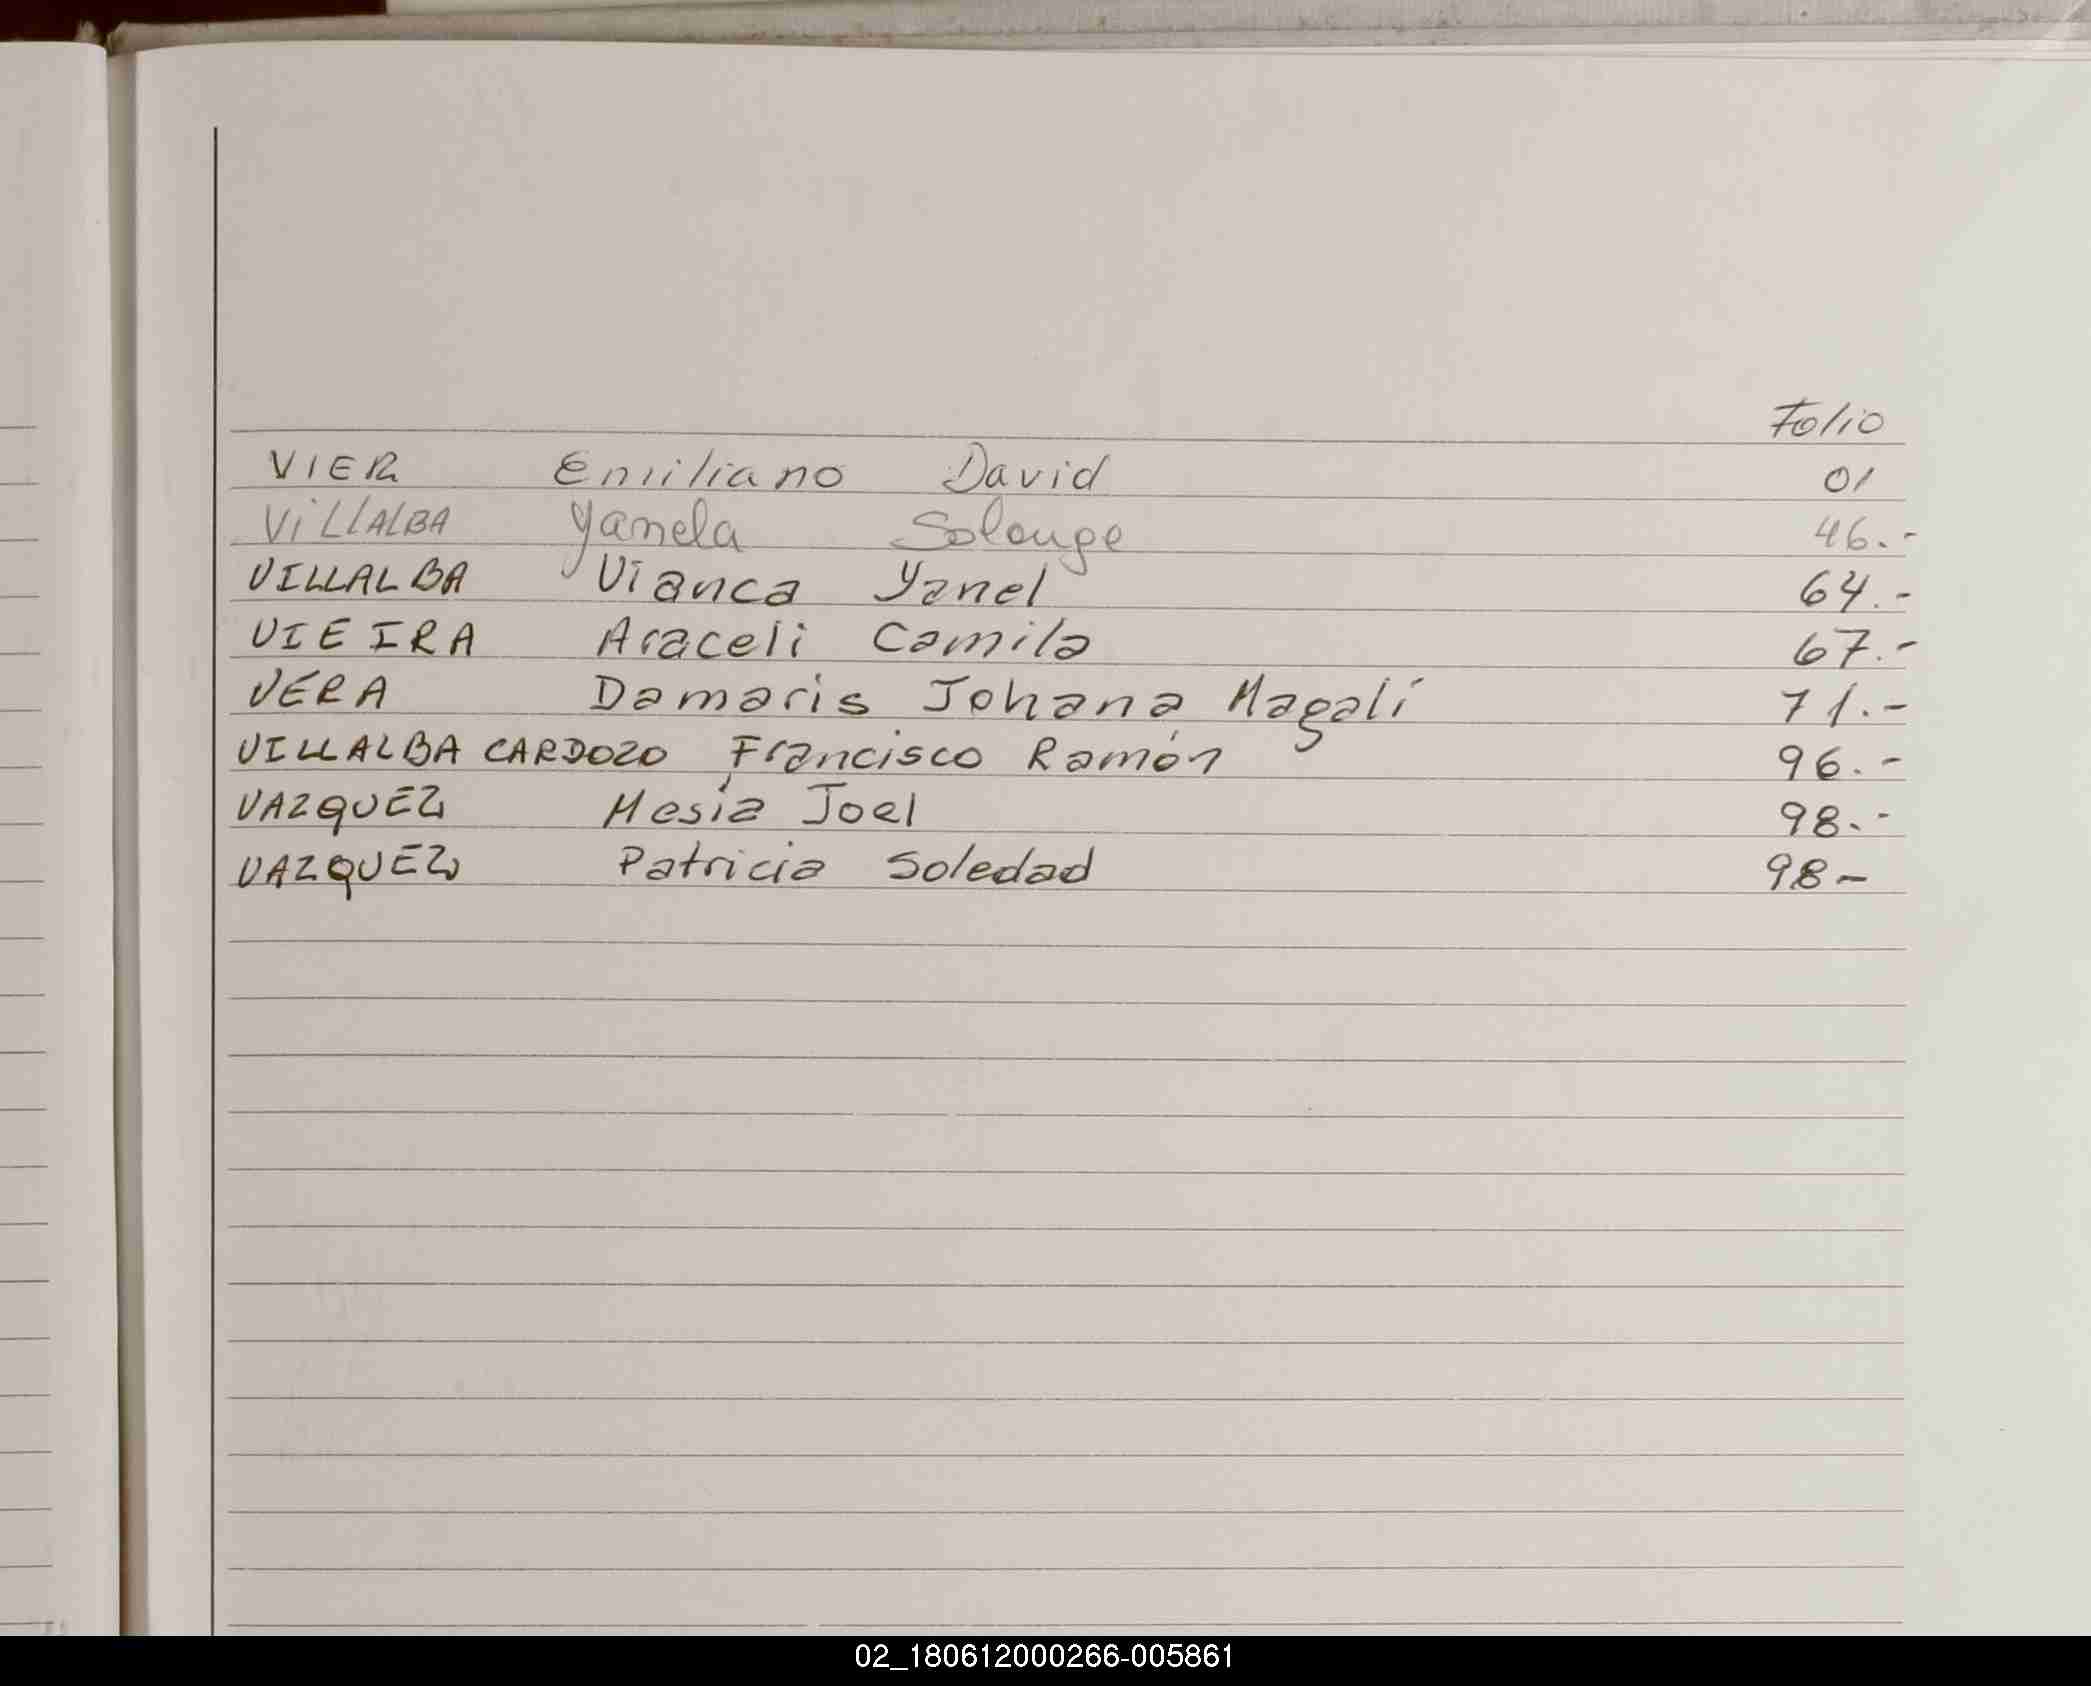 Folio
VIER Emiliano David 01
ViLLALBA Yanela Solange 46.-
VILLALBA Vianca Yanel 64.-
VIEIRA Araceli Camila 67.-
VERA Damaris Johana Magalí 71.-
VILLALBA CARDOZO Francisco Ramón 96.-
VAZQUEZ Mesía Joel 98.-
VAZQUEZ Patricia Soledad 98-
02_180612000266-005861